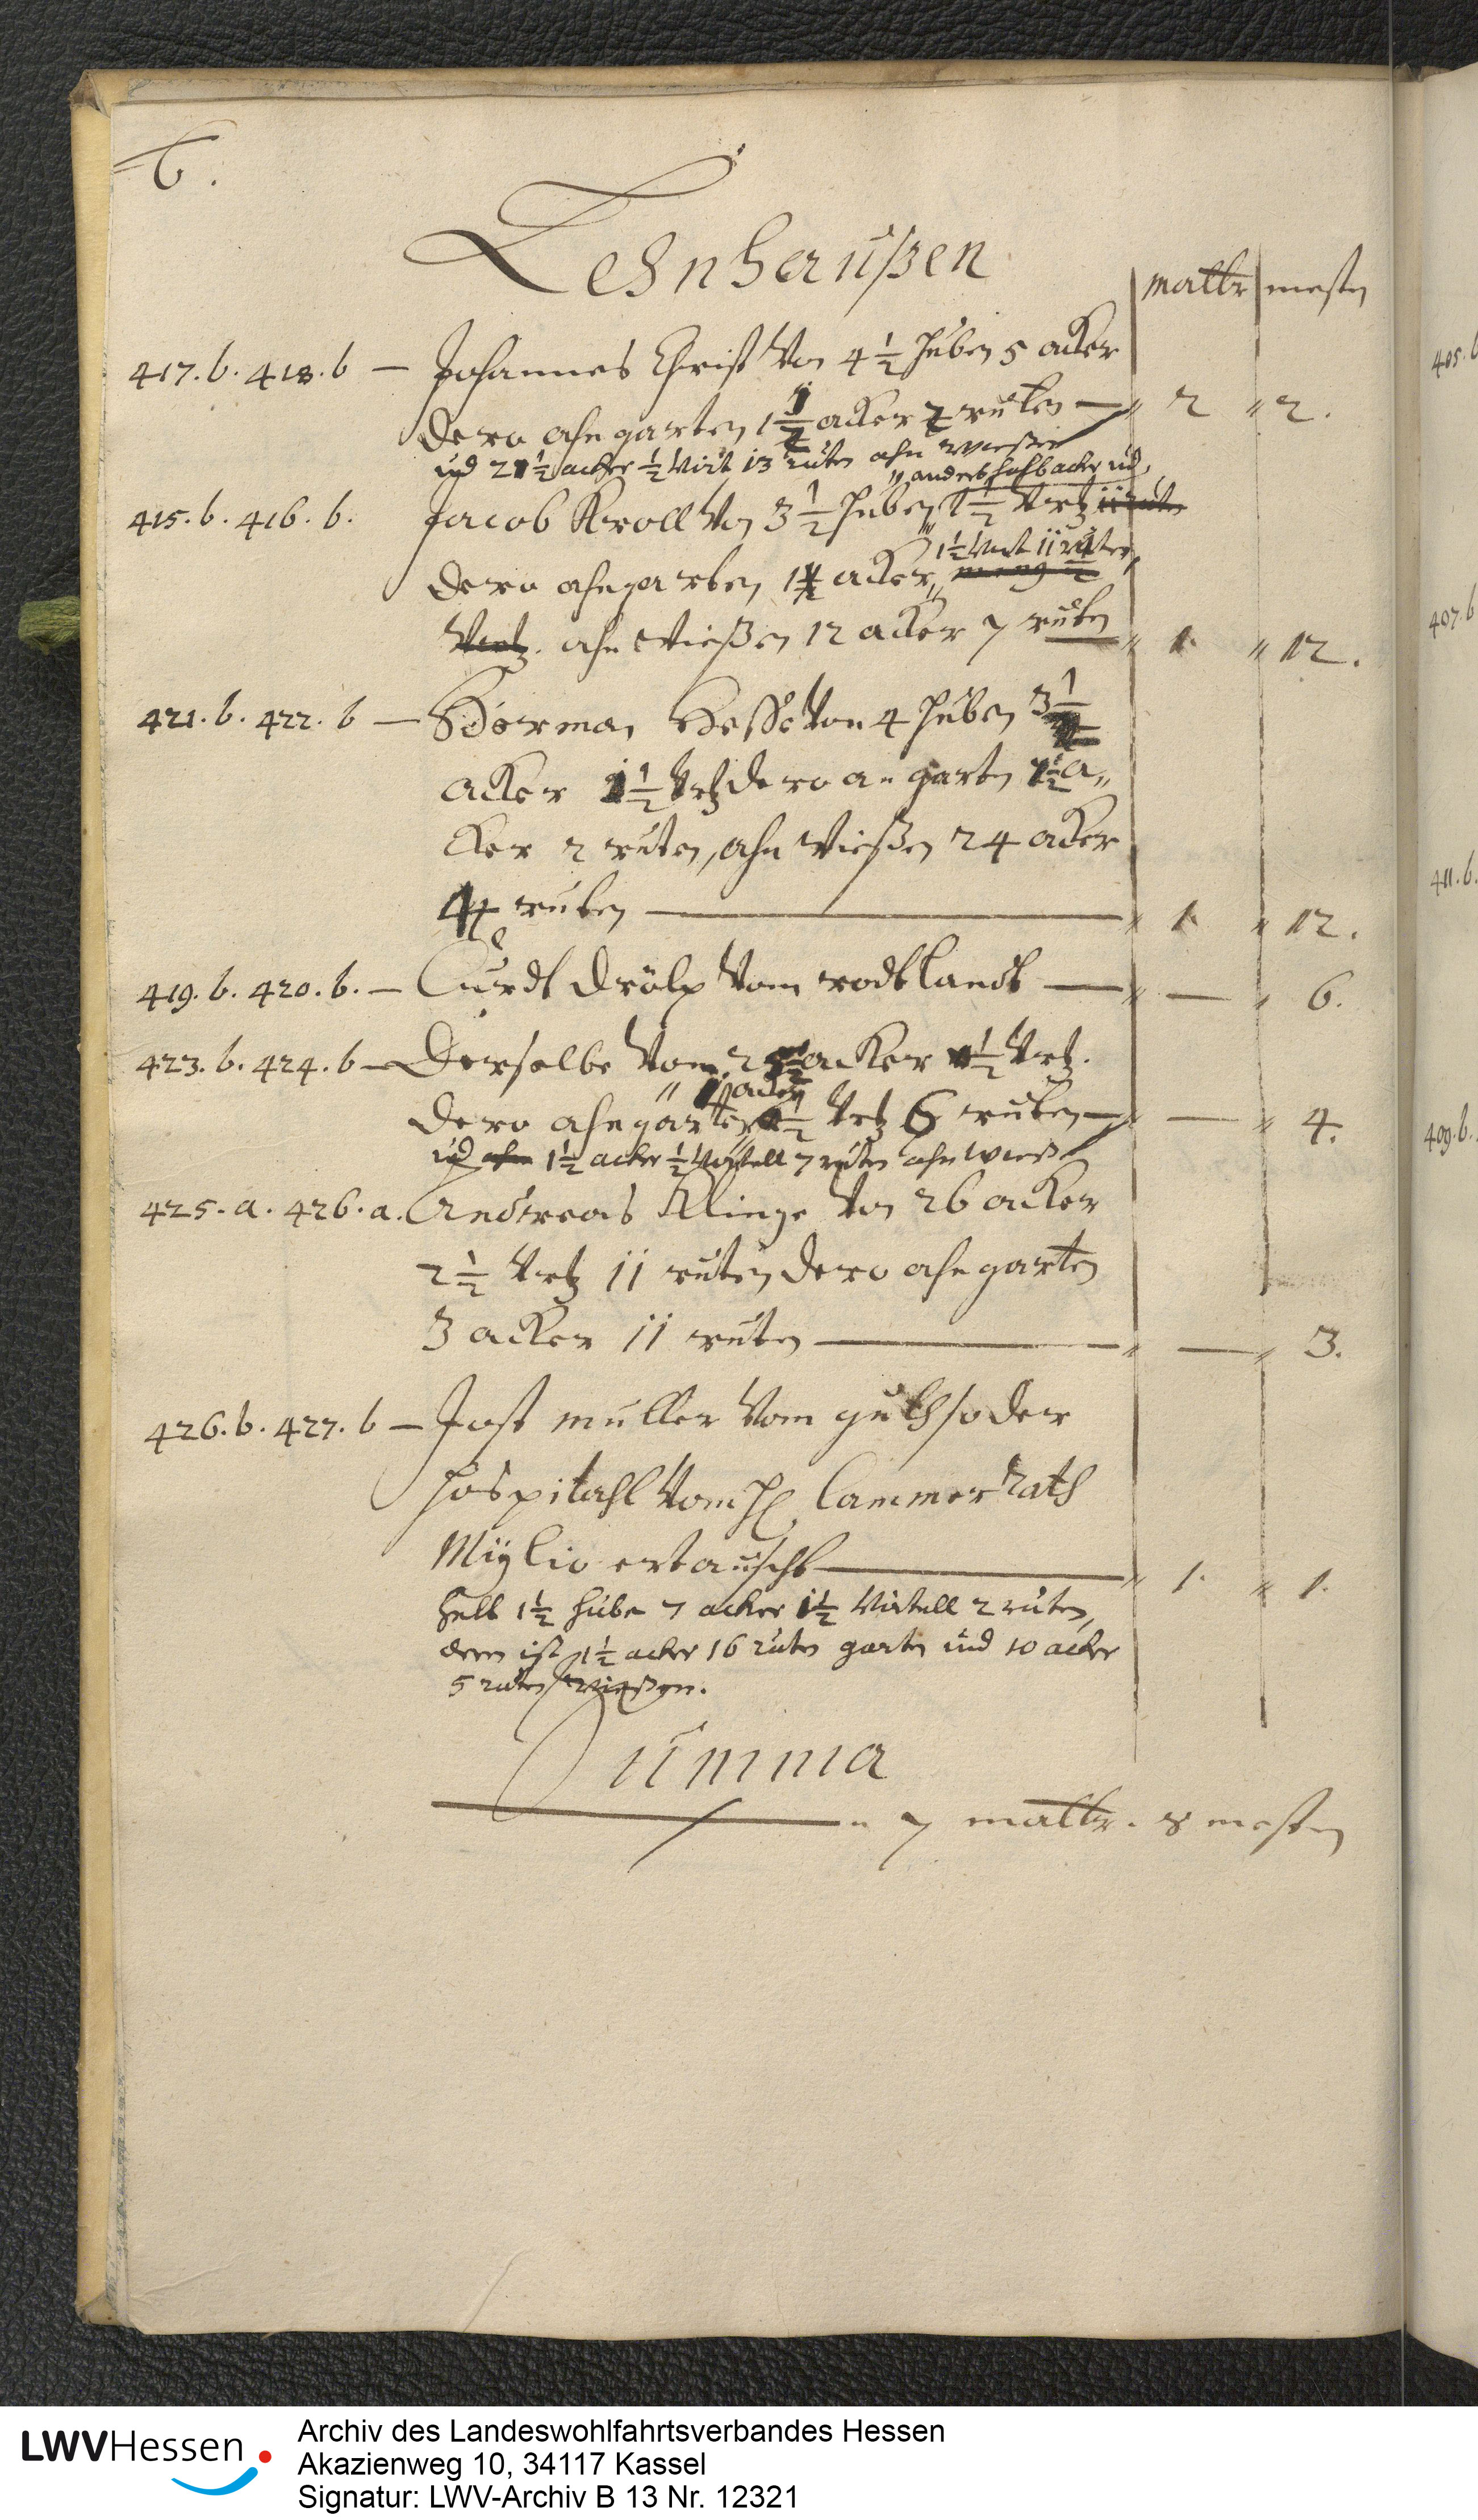 6.
Lehnhaußen
maltr mesten
417.b. 418.b — Johannes Christ Von 4 1/2 huben 5 acker
dero ahn garten 1 1/2 acker 7 ruten — " 2 " 2.
und 21 1/2 acker 1/2 Virt 13 ruten ahn wießen
" anderthalb acker und
415.b. 416.b. Jacob Kroll Von 3 1/2 huben 1 1/2 Vrtz 11 ruten
1 1/2 Virt 11 ruten,
dero ahn garten, 1 1/2 acker,,
Vertz. ahn Wießen 12 acker 7 ruten " 1. " 12.
421.b. 422.b — Herman Hesse Von 4 huben 3 1/2
acker 1 1/2 Vrtz dero an garten 1 1/2 a,,
cker 2 ruten, ahn Wießen 24 acker
4 ruten — " 1. " 12.
419.b. 420.b. — Curdt Drölp Vom rodtlandt — " — " 6.
423.b. 424.b — Derselbe Vom 2 acker 1 1/2 Vrtz.
" 1 acker
dero ahn garten 1/2 Vrtz 6 ruten — " — " 4.
und ahn 1 1/2 acker 1/2 Virtell 7 ruten ahn wießen
425.a. 426.a. Andreas Klinge Von 26 acker
2 1/2 Vrtz 11 ruten dero ahn garten
3 acker 11 ruten — " — " 3.
426.b. 427.b — Jost muller Vom guth so der
hospitahl Vom H. Cammer Rath
Mÿlio ertauscht — " 1. " 1.
helt 1 1/2 hube 7 acker 1 1/2 Virtell 2 ruten,
dern ist 1 1/2 acker 16 ruten garten und 10 acker
5 ruten Wießen.
Summa
" 7 maltr. 8 mesten
405.b
407.b
411.b.
409.b.
LWVHessen
Archiv des Landeswohlfahrtsverbandes Hessen
Akazienweg 10, 34117 Kassel
Signatur: LWV-Archiv B 13 Nr. 12321